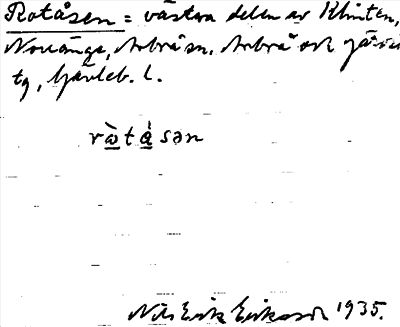 Rotåsen = västra delen av Klinten,
Norränge, Arbrå sn. Arbrå och Järvsö
tg, Gävleb. l.
ròtá sən
Nils Erik Eriksson 1935.